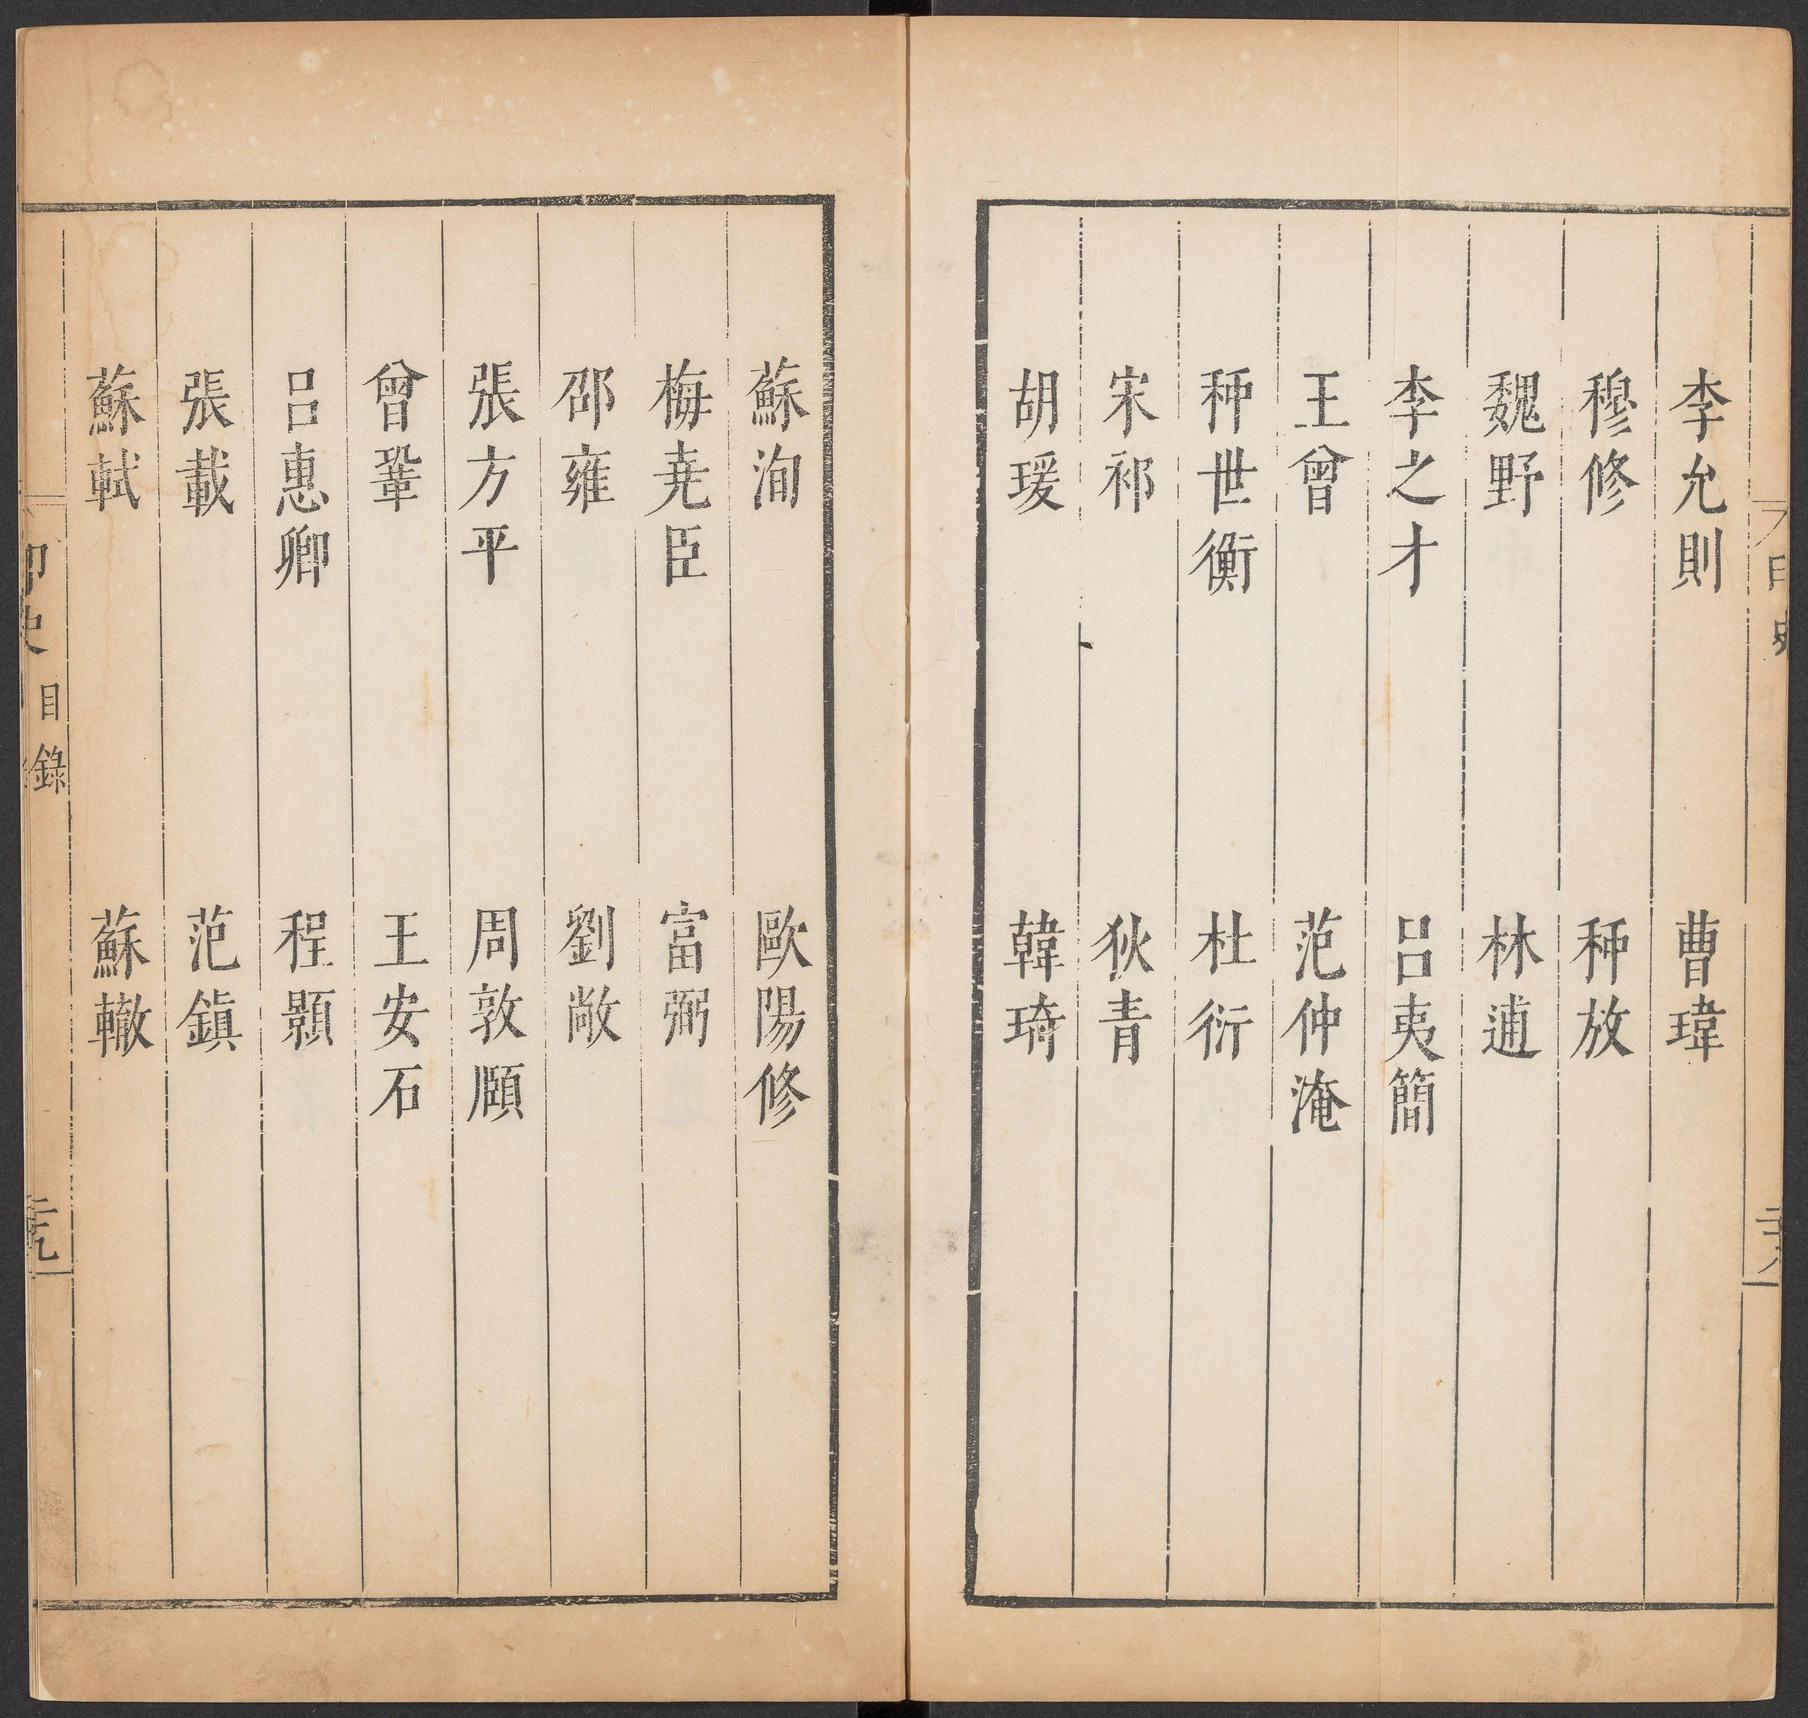 李允則 曹瑋
穆修 种放
魏野 林逋
李之才 呂夷簡
王曾 范仲淹
种世衡 杜衍
宋祁 狄青
胡瑗 韓琦
蘇洵 歐陽修
梅尭臣 富弼
邵雍 劉敞
張方平 周敦頤
曾鞏 王安石
呂惠卿 程顥
張載 范鎮
蘇軾 蘇轍
印史 目錄